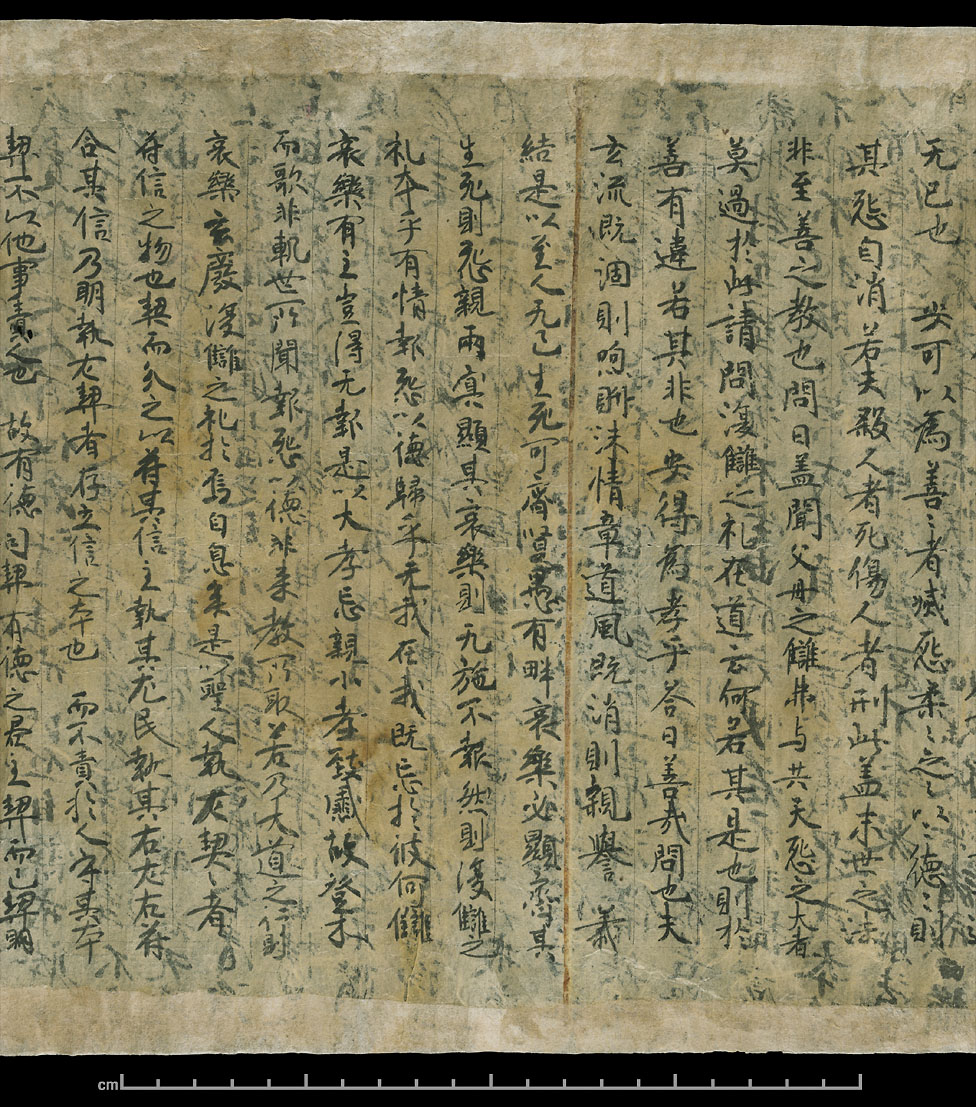 无已也 安可以為善〻者滅怨柔〻之〻以〻德〻則
其怨自消若夫殺人者死傷人者刑此盖末世之法
非至善之教也問曰盖聞父母之讎弗与共天怨之大者
莫過於此請問復讎之礼在道云何若其是也則於
善有違若其非也安得為孝乎荅曰善㢤問也夫
玄流既涸則呴沫情章道風既消則親譽 義
結是以至人无己生死可齊以愚有畔哀樂必顯齊其
生死則怨親兩冥顯其哀樂則无施不報然則復讎之
礼夲乎有情報怨以德歸乎无我在我既忘於彼何讎
哀樂有主豈得无報是以大孝忘親小孝致慼故登木
而歌非軌世所聞報怨以德非来教所取若乃大道之行則
哀樂玄廢復讎之礼於焉自息矣是以聖人執左契〻者
苻信之物也契而分之以苻其信主執其左民執其右左右苻
合其信乃明執左契者存立信之夲也 而不責於人守其夲
契不以他事責人也 故有德司契有德之君主契而已契明